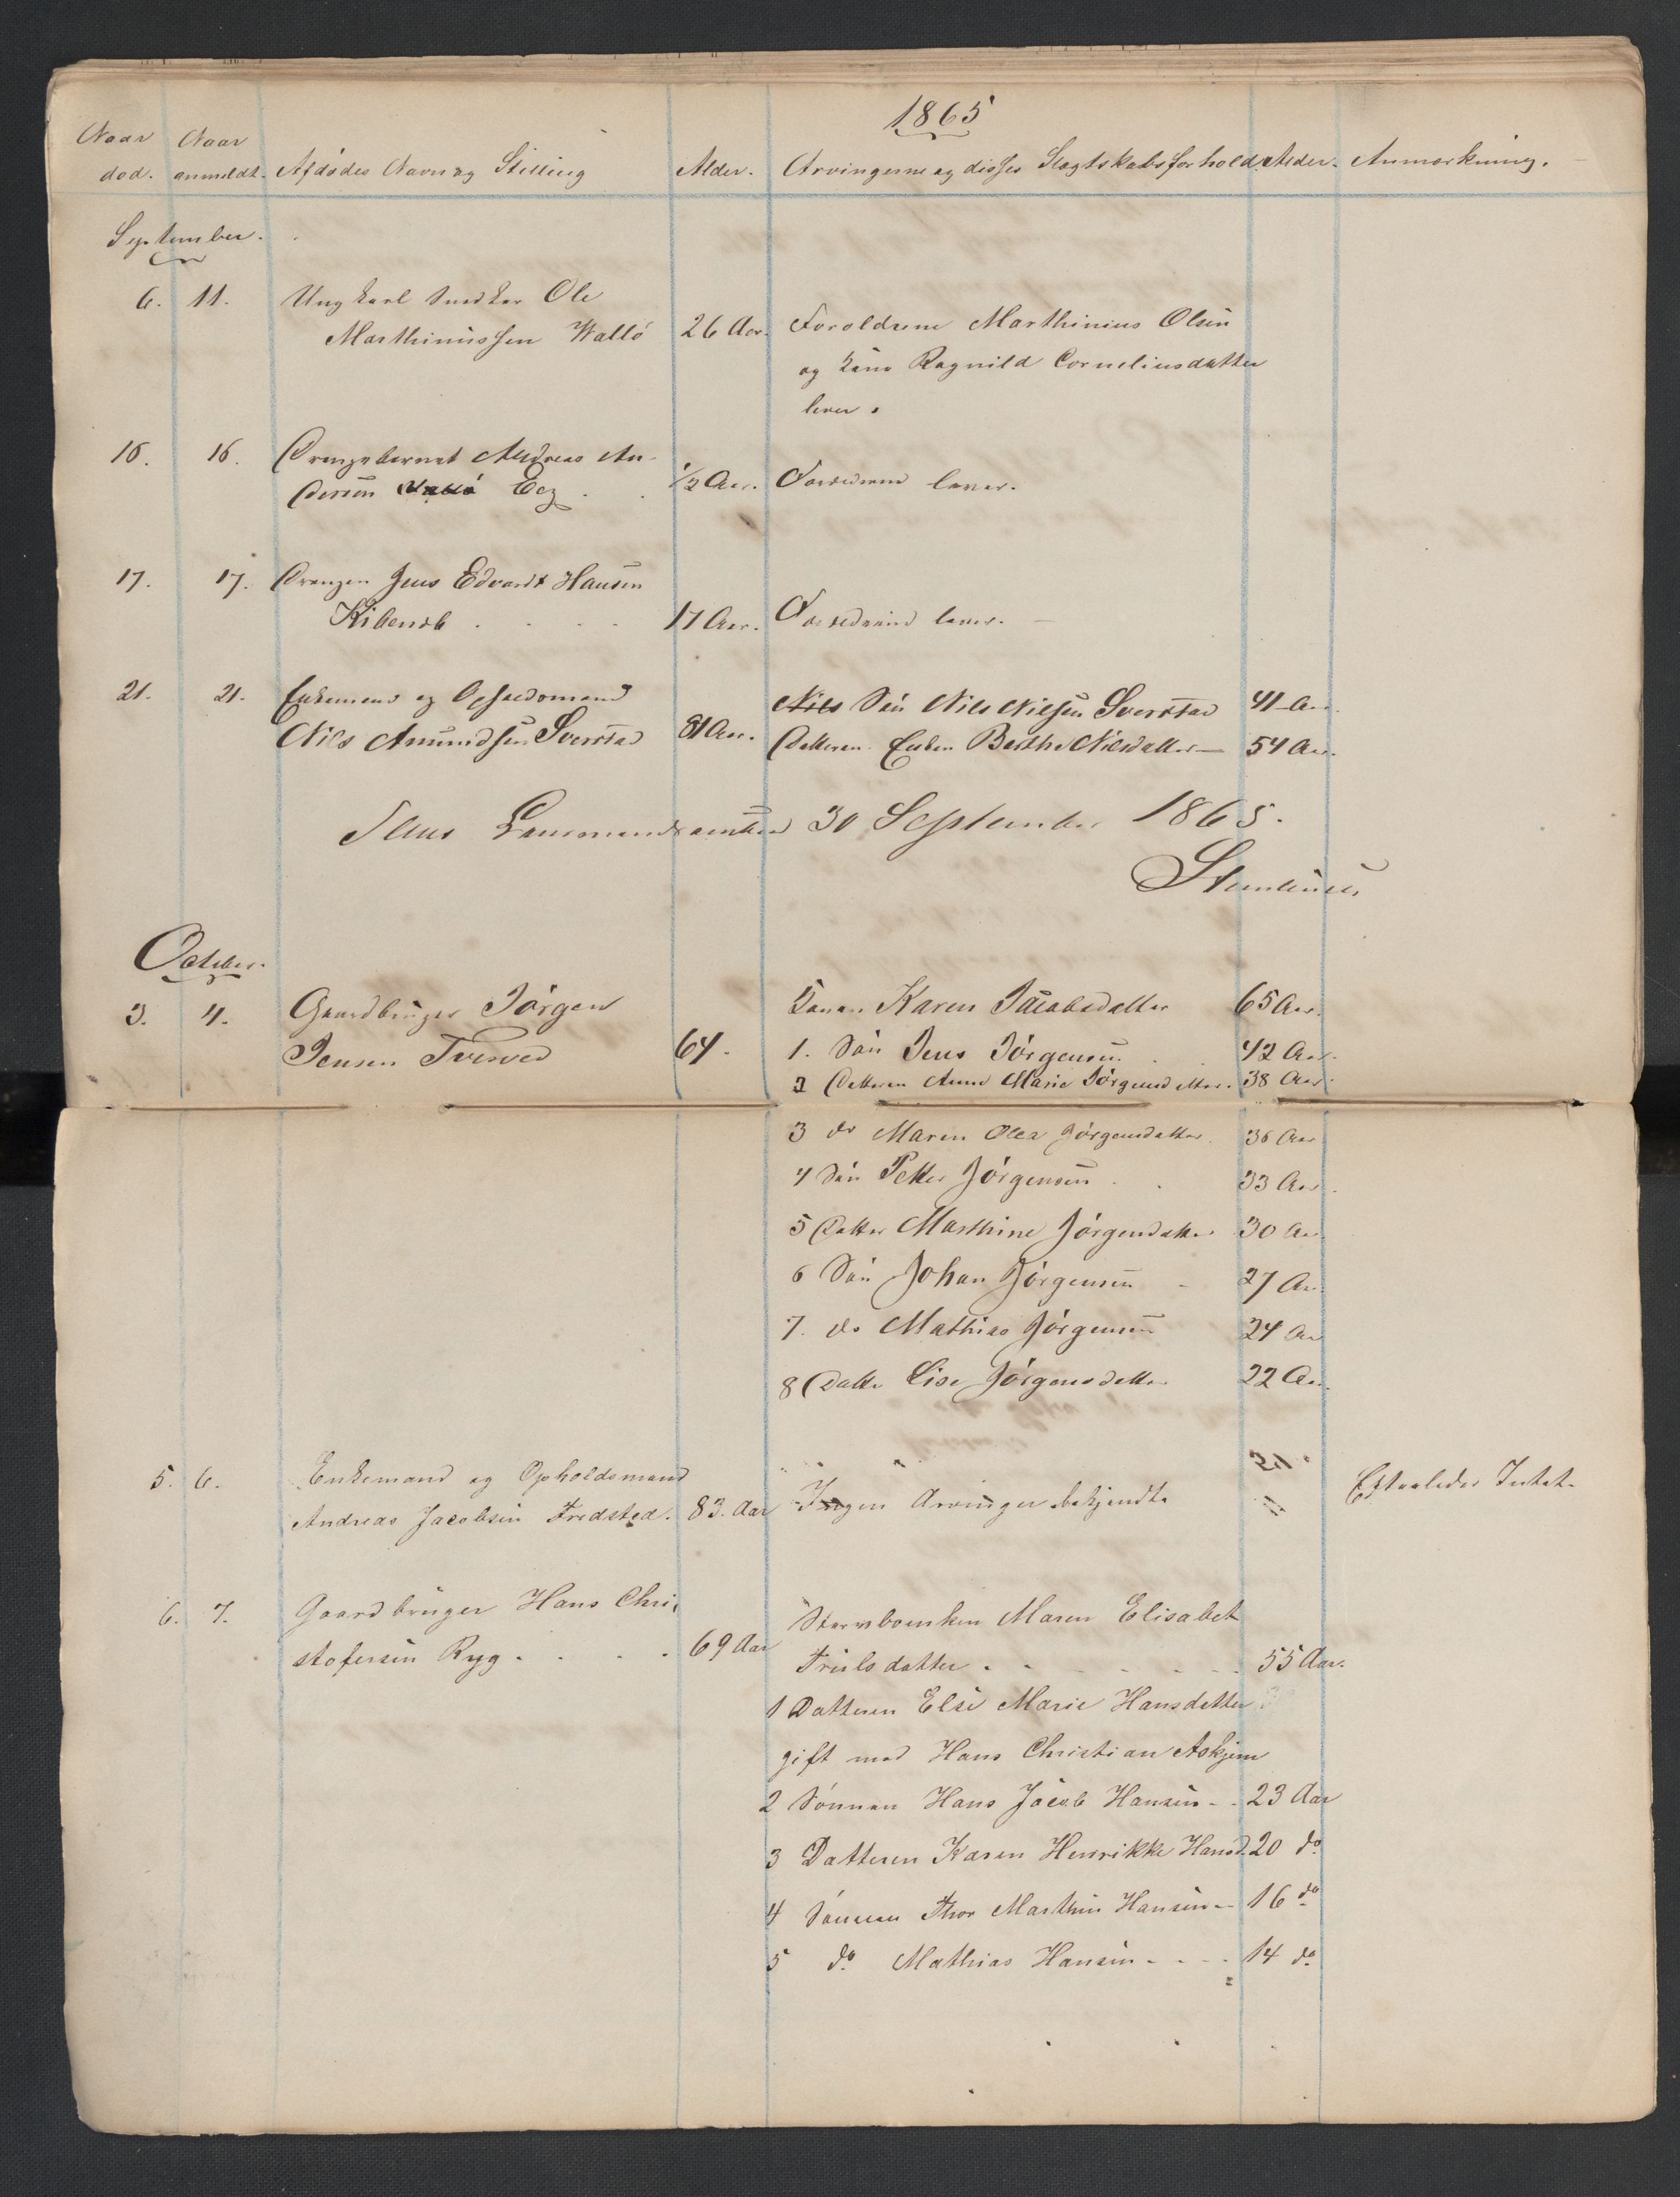 1865
Naar Naar
død. anmeldt. Afdødes Navn og Stilling Alder. Arvingerne og disses Slagtskabsforhold. Alder. Anmærkning.
September.
6. 11. Ungkarl Snedker Ole
Marthiniussen Wallø 26 Aar. Forældrene Marthinius Olsen
og kone Ragnild Corneliusdatter
lever.
16. 16. Drengebarnet Andreas An-
dersen Eeg ½ Aar. Forældrene lever.
17. 17. Drengen Jens Edvardt Hansen
Kibensb 17 Aar. Forældrene lever.
21. 21. Enkemand og Opholdsmand Nils Sön Nils Nilsen Sverstad 41 Aar
Nils Amundsen Sverstad 81 Aar. Datteren Enken Berthe Nilsdatter 54 Aar.
Lensmandsembed 30 September 1865.
October.
3. 4. Gaardbruger Jörgen Konen Karen Jacobsdatter 65 Aar.
Jensen Tveved 64. 1. Sön Jens Jörgensen 42 Aar.
2 Datteren Anne Marie Jörgensdatter. 38 Aar.
3 do Maren Olea Jörgensdatter. 36 Aar
4 Sön Petter Jörgensen 33 Aar.
5 Datter Marthine Jörgensdatter 30 Aar
6 Sön Johan Jörgensen 27 Aar.
7. do Mathias Jörgensen 24 Aar
8 Datter Lise Jörgensdatter 22 Aar.
5. 6. Enkemand og Opholdsmand
Andreas Jacobsen Fredsted. 83. Aar Ingen Arvinger bekjendte Efterlader Intet.
6. 7. Gaardbruger Hans Chri-
stofersen Ryg . . . . 69 Aar Stervboenken Maren Elisabet
Truls datter . . . . . . 55 Aar.
1 Datteren Else Marie Hansdatter
gift med Hans Christian Askjem
2 Sønnen Hans Jacob Hansen - - 23 Aar
3 Datteren Karen Henrikke Hansd. 20 do
4 Sønnen Thor Marthin Hansen - - 16 do
5 do Mathias Hansen - - - - 14 do